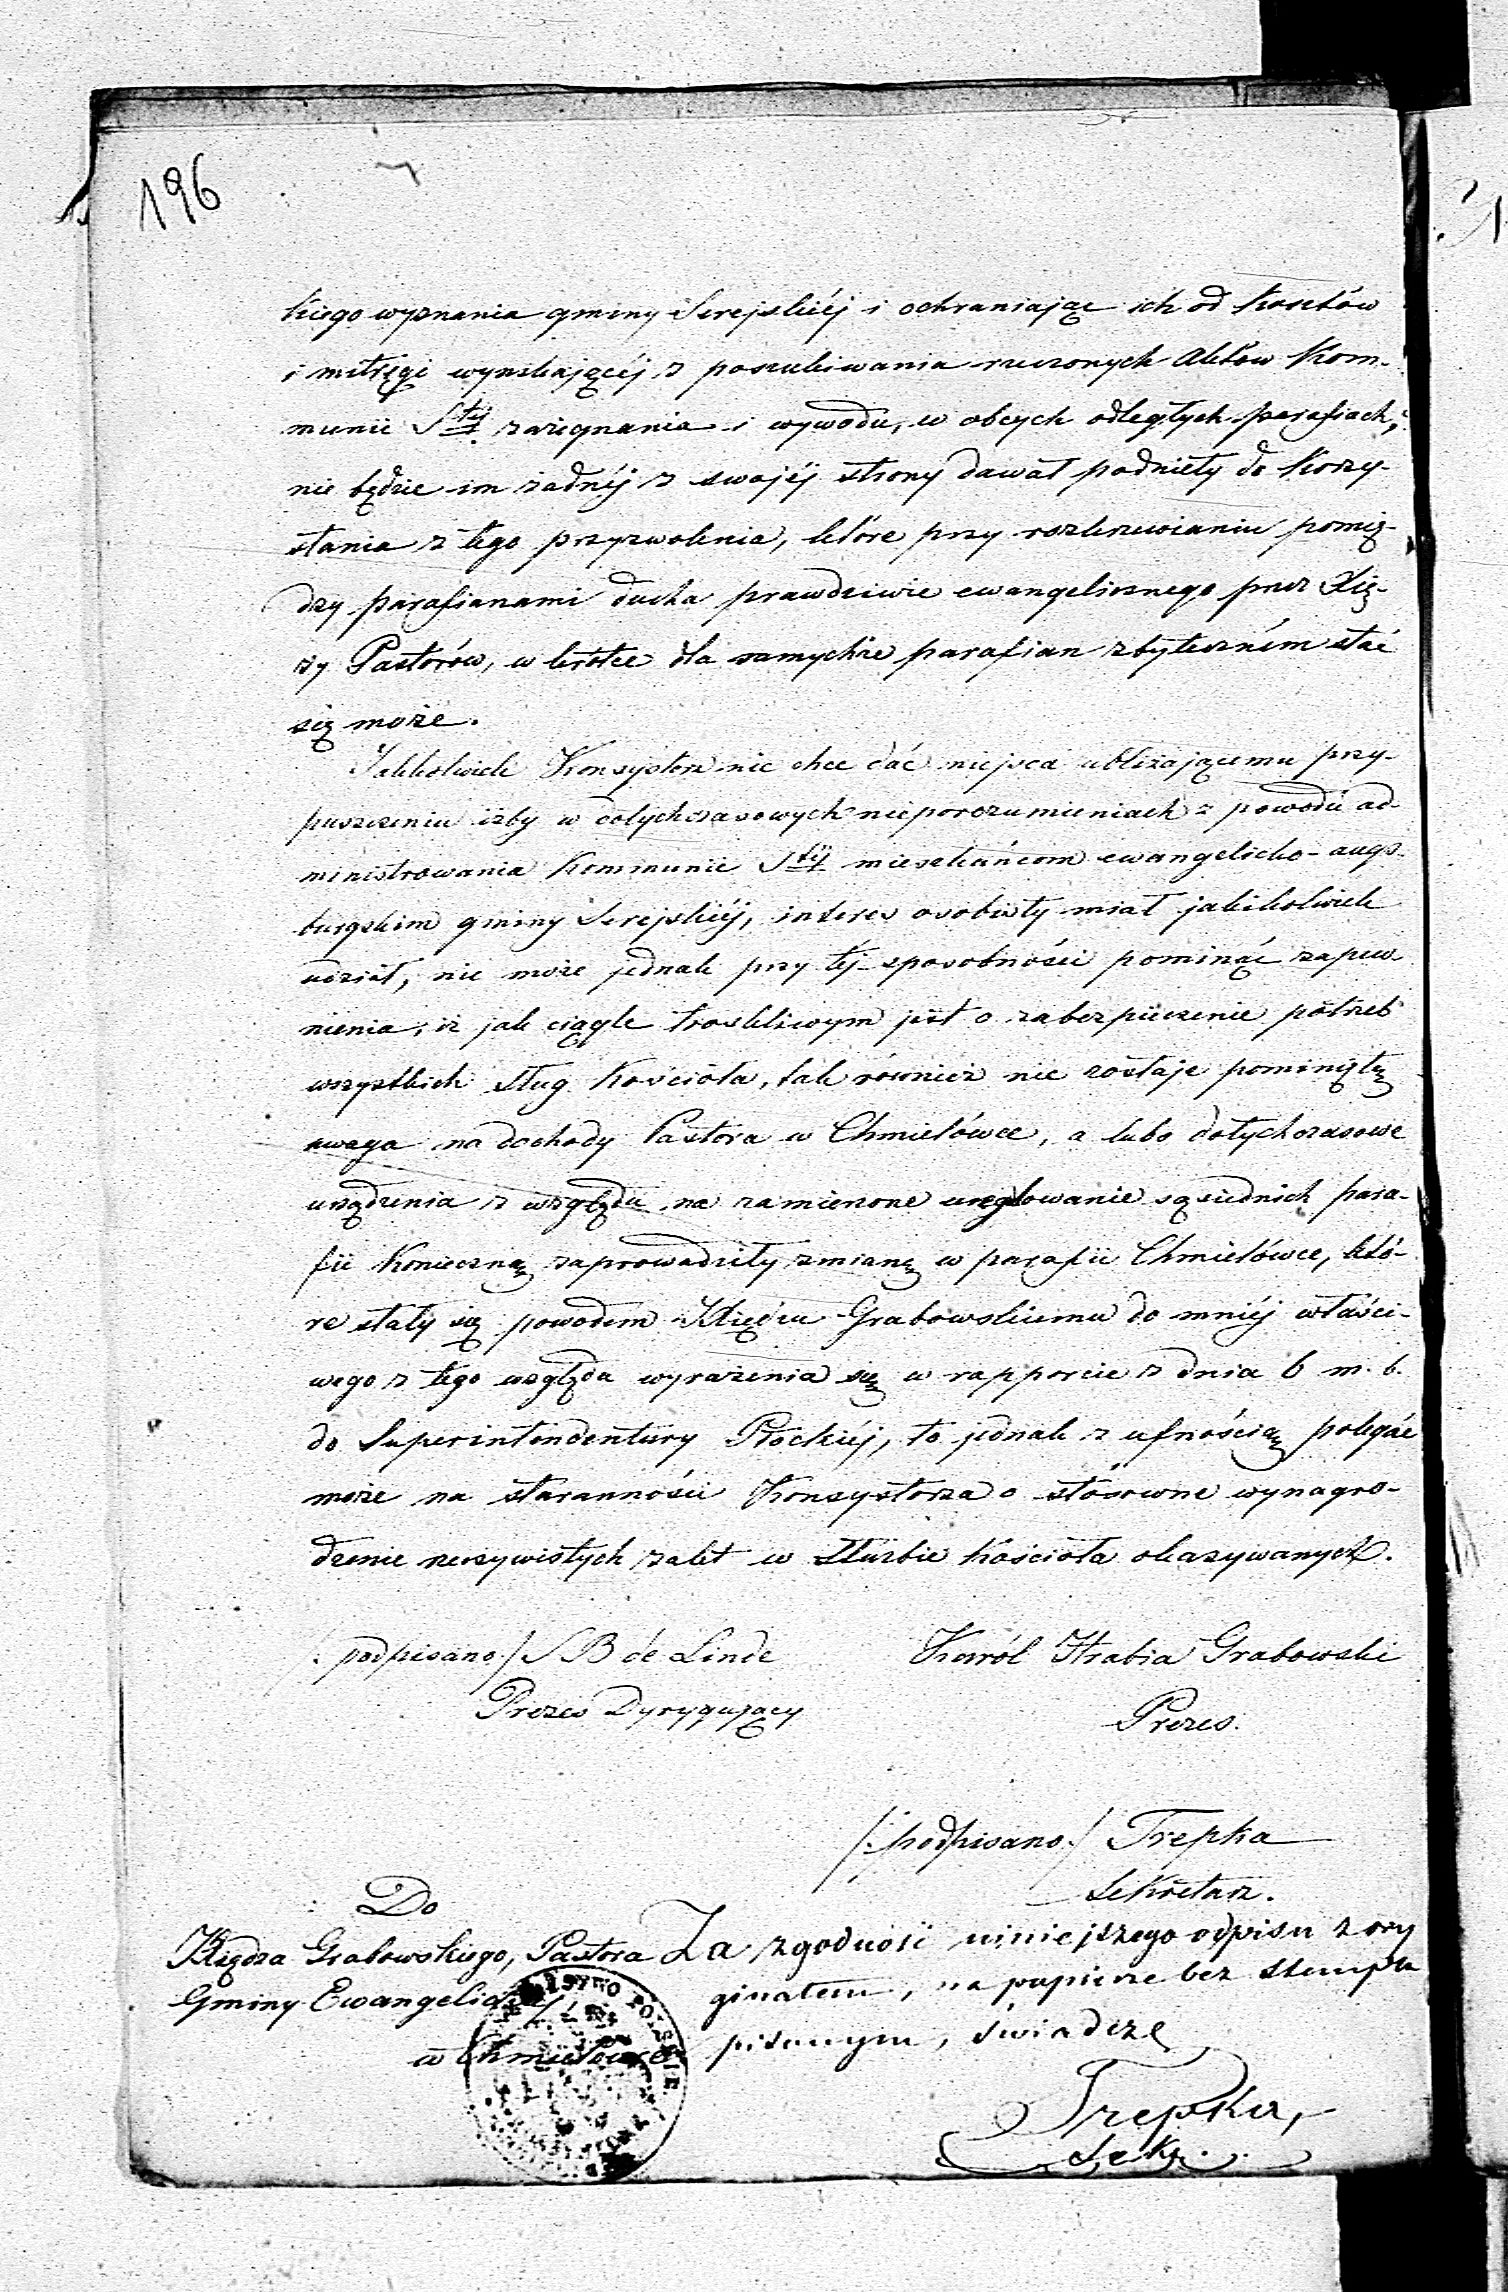 196
kiego wyznania gminy Serejskiéj i ochraniając ich od kosztów
i mitręgi wynikającéj z poszukiwania rzeczonych aktów Kom-
munii Stéj zażegnania i wywodu, w obcych odległych parafiach,
nie będzie im żadnéj z swojéj strony dawał podniety do korzy-
stania z tego przyzwolenia, które przy rozkrzewianiu pomię-
dzy parafianami ducha prawdziwie ewangelicznego przez Xię-
ży Pastorów, w krótce dla samychże parafian zbyteczném stać
się może.
Jakkolwiek Konsystorz nie chce dać miejsca ubliżającemu przy-
puszczeniu iżby w dotychczasowych nieporozumieniach z powodu ad-
ministrowania Kommunii Stéj mieszkańcom ewangelicko-augs-
burgskim gminy Serejskiéj, interes osobisty miał jakikolwiek
udział, nie może jednak przy téj sposobności pominąć zapew
nienia, iż jak ciągle troskliwym jest o zabezpieczenie potrzeb
wszystkich sług Kościoła, tak również nie zostaje pominiętą
uwaga na dochody Pastora w Chmielówce, a lubo dotychczasowe
urządzenia z względu na zamierzone uregulowanie sąsiednich para-
fii konieczną zaprowadziły zmianę w parafii Chmielówce, któ-
re stały się powodem Xiędzu Grabowskiemu do mniéj właści-
wego z tego względu wyrażenia się w rapporcie z dnia 6 m. b.
do Superintendentury Płockiéj, to jednak z ufnością polegać
może na staranności Konsystorza o stósowne wynagro-
dzenie rzeczywistych zalet w służbie Kościoła okazywanych.
/podpisano/ S B de Linde Karól Hrabia Grabowski
Prezes Dyrygujący Prezes.
/:podpisano:/ Trepka
Sekretarz.
Do
Xiędza Grabowskiego, Pastora
Gminy Ewangelickiéj
w Chmielówce
Za zgodność niniejszego odpisu z ory
ginałem, na papierze bez stempla
pisanym, świadczę
Trepka,
Sekr.